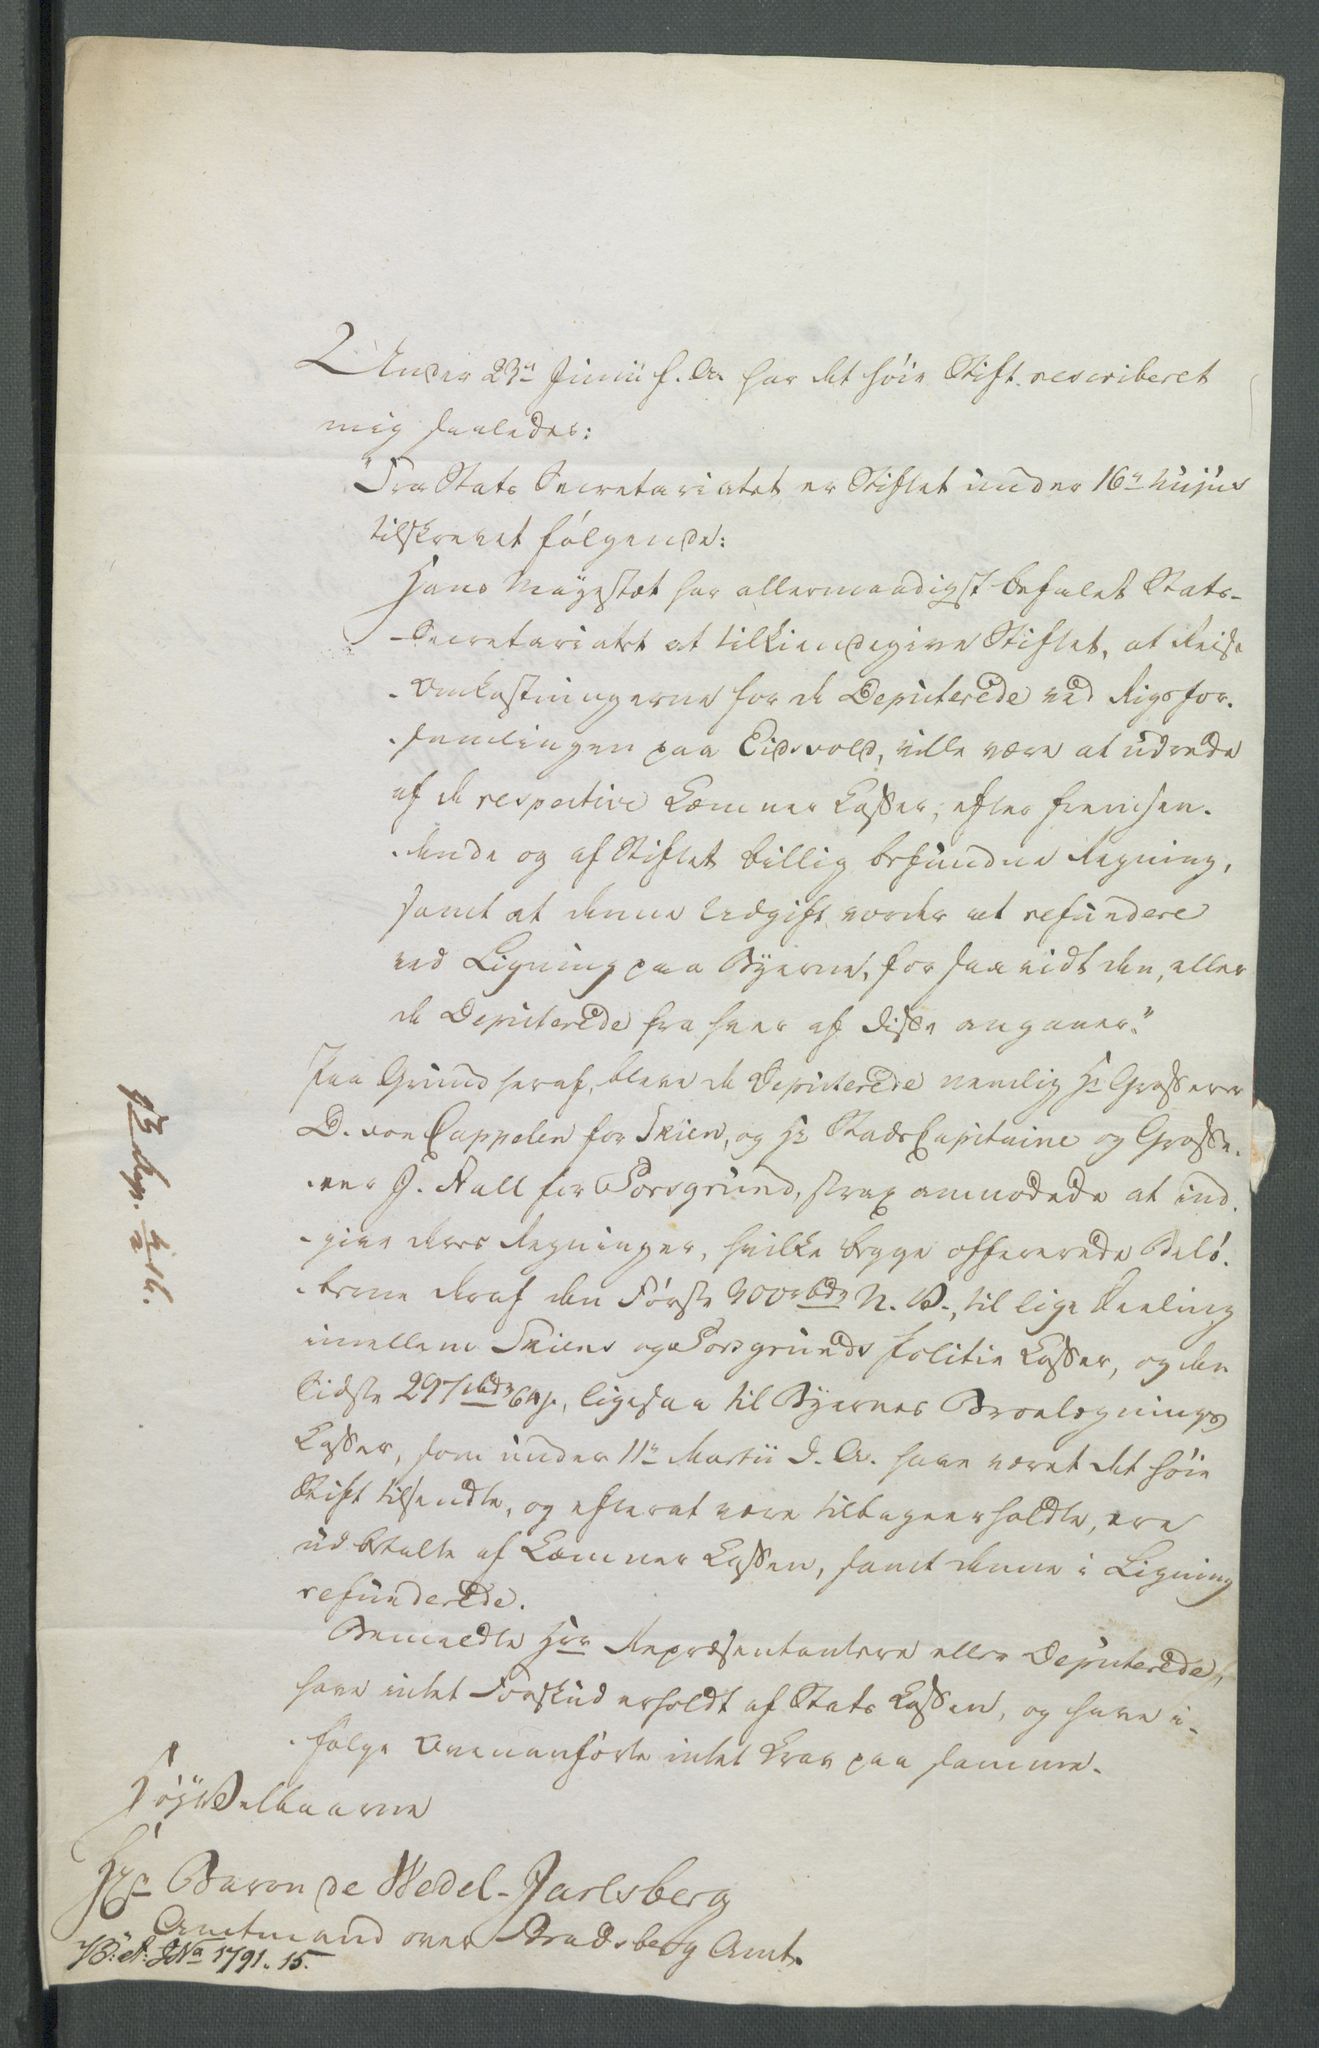 Under 23de Junii f. A. har det høie Stift rescriberet
mig saaledes:
"Fra Stats Secretariatet er Stiftet under 16de hujus
tilskrevet følgende:
Hans Mayestæt har allernaadigst befalet Stats-
-Secretariatet at tilkiendegive Stiftet, at Reise
-Omkostningerne for de Deputerede ved Rigsfor-
-samlingen paa Eidsvold, ville være at udrede
af de respective Kæmner Kasser, efter fremsen-
-dende og af Stiftet billig befundne Regning,
samt at denne Udgift vorder at refundere
ved Ligning paa Byerne, for saavidt den, eller
de Deputerede fra hver af disse angaaer."
Paa Grund heraf, bleve de Deputerede nemlig Hr Grosserer
D. von Cappelen for Skien, og Hr StadsCapitaine og Grosse-
-rer J. Aall for Porsgrund, strax anmodede at ind-
-give deres Regninger, hvilke begge offererede Belø-
-bene deraf den Første 900 rbdr N. V., til lige Deeling
imellem Skiens og Porsgrunds Politie Kasser, og den
Sidste 297 rbdr 64 s, ligesaa til Byernes Broelægnings
Kasser, som under 11te Martii d. A. have været det høie
Stift tilsendte, og efterat være tilbageerholdte, ere
udbetalte af Kæmner Kassen, samt denne i Ligning
refunderede.
Bemeldte Hrr Repræsentantere eller Deputerede,
have intet Forskud erholdt af Stats Kassen, og have i-
-følge Ovenanførte intet Krav paa samme.
HøyVelbaarne
Hr Baron de Wedel-Jarlsberg
Amtmand over Bradsberg Amt.
B: A: JNo 1791. 15.